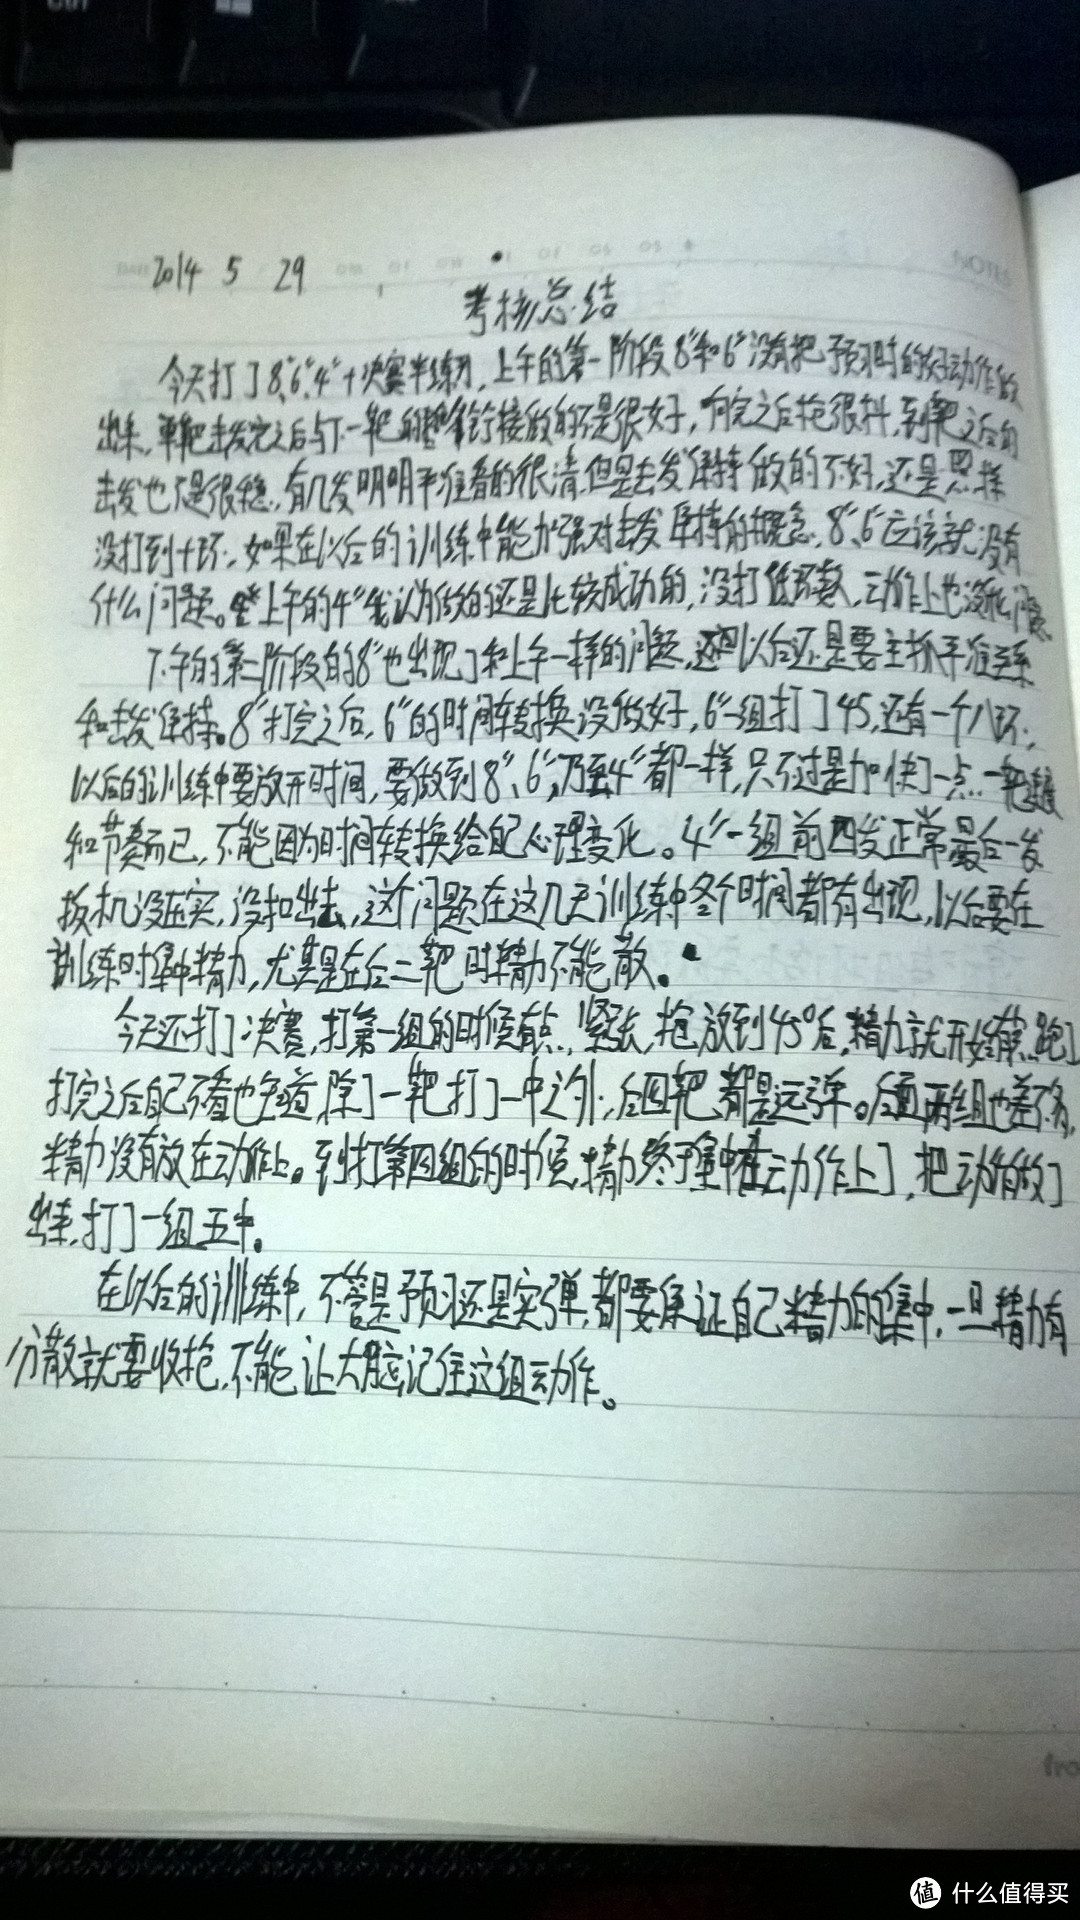 2014 5 29
考核总结
今天打了8"、6"、4"+决赛半练习,上午的第一阶段8"和6"没有把预习时的好动作做
出来,单靶击发完之后与下一靶的衔接做的不是很好,响完之后抢很抖,到靶之后的
击发也不是很稳,有几发明明平准看的很清,但是击发保持做的不好,还是照样
没打到十环,如果在以后的训练中能加强对击发保持的概念,8"、6"应该就没有
什么问题。上午的4"我认为做的还是比较成功的,没打低环数,动作上也没什么问题。
下午的第二阶段的8"也出现了和上午一样的问题,以后还是要主抓平准关系
和击发保持。8"打完之后,6"的时间转换没做好,6"一组打了45,还有一个八环,
以后的训练中要放开时间,要做到8"、6",乃至4"都一样,只不过是加快了一点速度
和节奏而已,不能因为时间转换给自己心理变化。4"一组前四发正常最后一发
扳机没压实,没扣出去,这个问题在这几天训练中各个时间都有出现,以后要在
训练时集中精力,尤其是在后二靶时精力不能散。
今天还打了决赛,打第一组的时候有点紧张,抢放到45°后,精力就开始有点跑了
打完之后自己不看也知道,除了一靶打了一中之外,后四靶都是远弹。后面两组也差不多,
精力没有放在动作上。到打第四组的时候,精力终于集中在动作上了,把动作做了
出来,打了一组五中。
在以后的训练中,不管是预习还是实弹,都要保证自己精力的集中,一旦精力有
分散就要收抢,不能让大脑记住这组动作。
fro
值 什么值得买